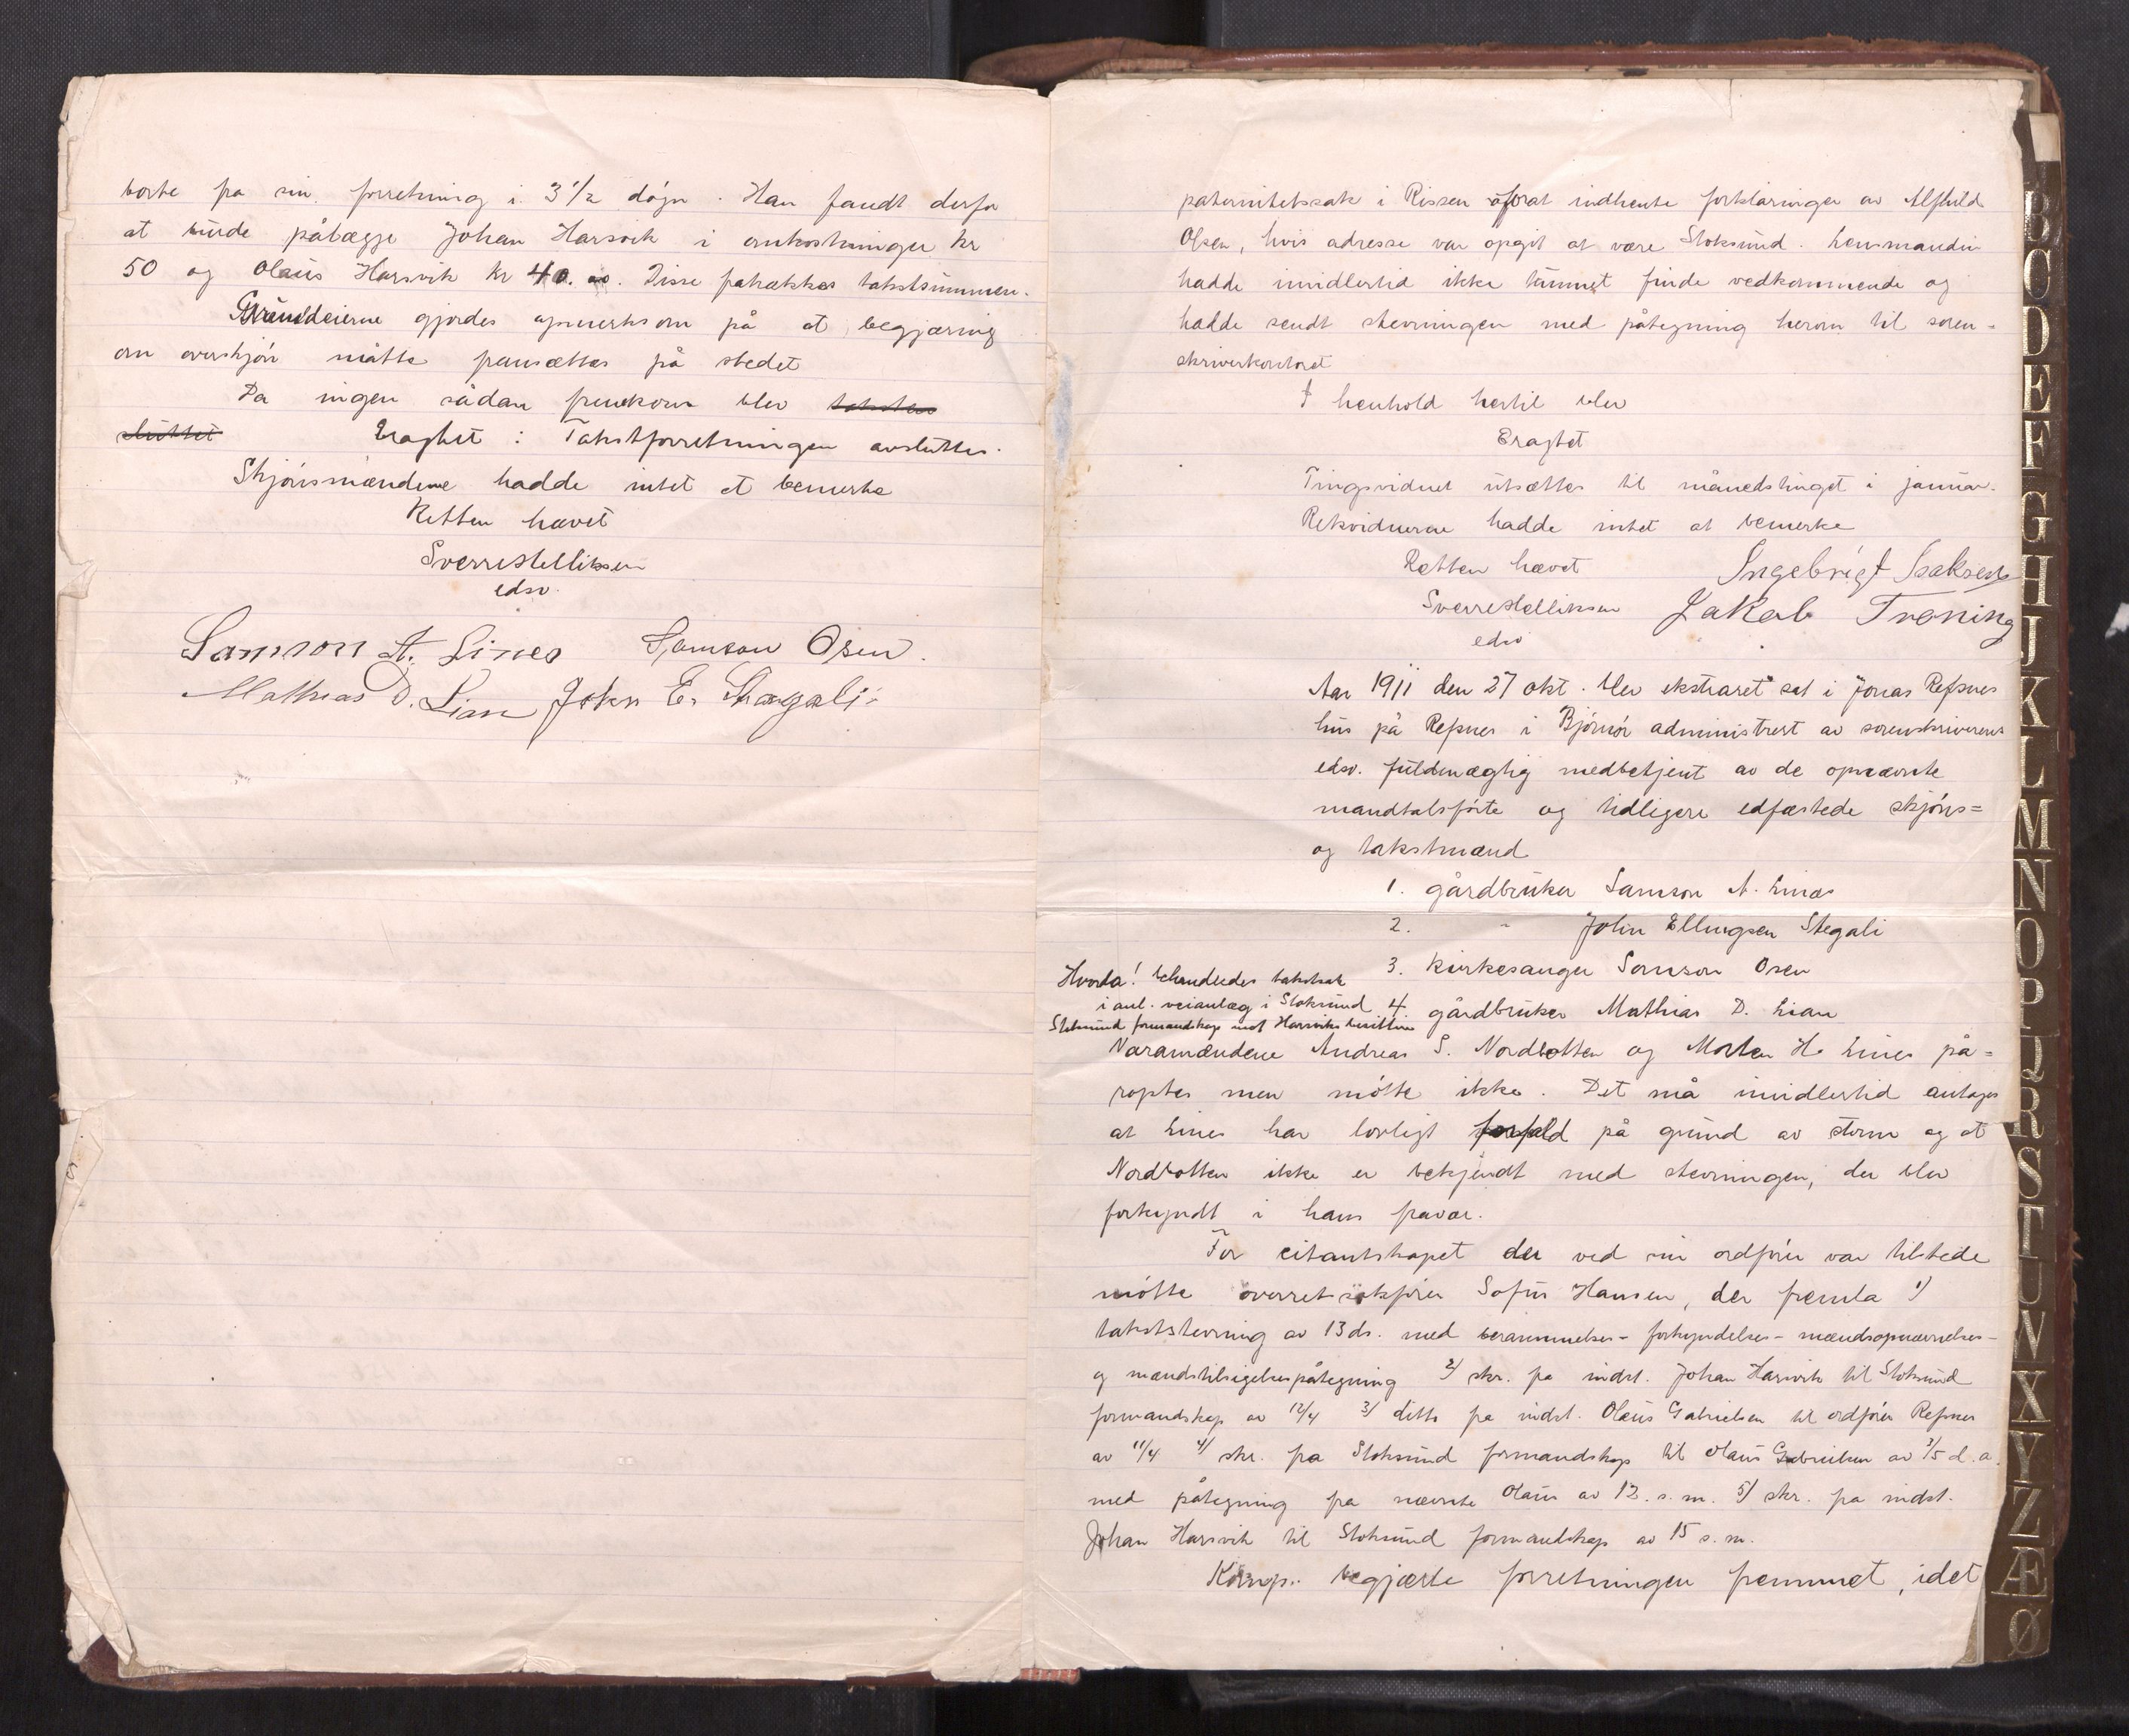 borte fra sin forretning i 3 1/2 døgn. Han fandt derfor
at burde pålægge Johan Harsvik i omkostninger kr
50 og Olaus Harsvik kr 40. Disse fratrækkes takstsummen.
Grundeierne gjordes opmerksom på at begjæring
om overskjøn måtte fremsættes på stedet
Da ingen sådan fremkom blev taksten
sluttet Eragtet: Takstforretningen avsluttes.
Skjønsmændene hadde intet at bemerke
Retten hævet
Sverre Stelliksen
edsv.
Samson A. Lines Samson Osen.
Mathias D. Lian John E. Stegali
paternitetssak i Rissen forat indhente forklaringer av Alfhild
Olsen, hvis adresse var opgit at være Stoksund. Lensmanden
hadde imidlertid ikke kunnet finde vedkommende og
hadde sendt stevningen med påtegning herom til soren-
skriverkontoret
I henhold hertil blev
Eragtet
Tingsvidnet utsættes til månedstinget i januar.
Retsvidnerne hadde intet at bemerke
Retten hævet Ingebrigt Isaksen
Sverre Stelliksen Jakob Traning
edsv
Aar 1911 den 27 okt. blev ekstraret sat i Jonas Refsnes
hus på Refsnes i Bjørnør administrert av sorenskriverens
edsv. fuldmægtig medbetjent av de opnævnte
mandtalsførte og tidligere edfæstede skjøns-
og takstmænd
1. gårdbruker Samson A. Lines
2. " John Ellingsen Stegali
3. Kirkesanger Samson Osen
Hvorda! behandledes takstsak
i anl. veianlæg i Stoksund 4. gårdbruker Mathias D. Lian
Stoksund formandskap mot Harsviks
Varamændene Andreas S. Nordbotten og Morten H. Lines på-
roptes men møtte ikke. Det må imidlertid antages
at Lines har lovligt forfald på grund av storm og at
Nordbotten ikke er bekjendt med stevningen, der blev
forkyndt i hans fravær.
For citantskapet der ved sin ordfører var tilstede
møtte overretssakfører Sofus Hansen, der fremla 1)
takststevning av 13 ds. med berammelses- forkyndelses- mændsopnævnelses-
og mændstilsigelsespåtegning 2) skr. fra indst. Johan Harsvik til Stoksund
formandskap av 12/4 3) ditto fra indst. Olaus Gabrielsen til ordfører Refsnes
av 11/4 4) skr. fra Stoksund formandskap til Olaus Gabrielsen av 3/5 d.a.
med påtegning fra nævnte Olaus av 12. s.m. 5) skr. fra indst.
Johan Harsvik til Stoksund formandskap av 15 s.m.
Komp. begjærte forretningen fremmet, idet
B
C
D
E
F
G
H
J
K
L
M
N
O
P
Q
R
S
T
U
V
X
Y
Z
Æ
Ø